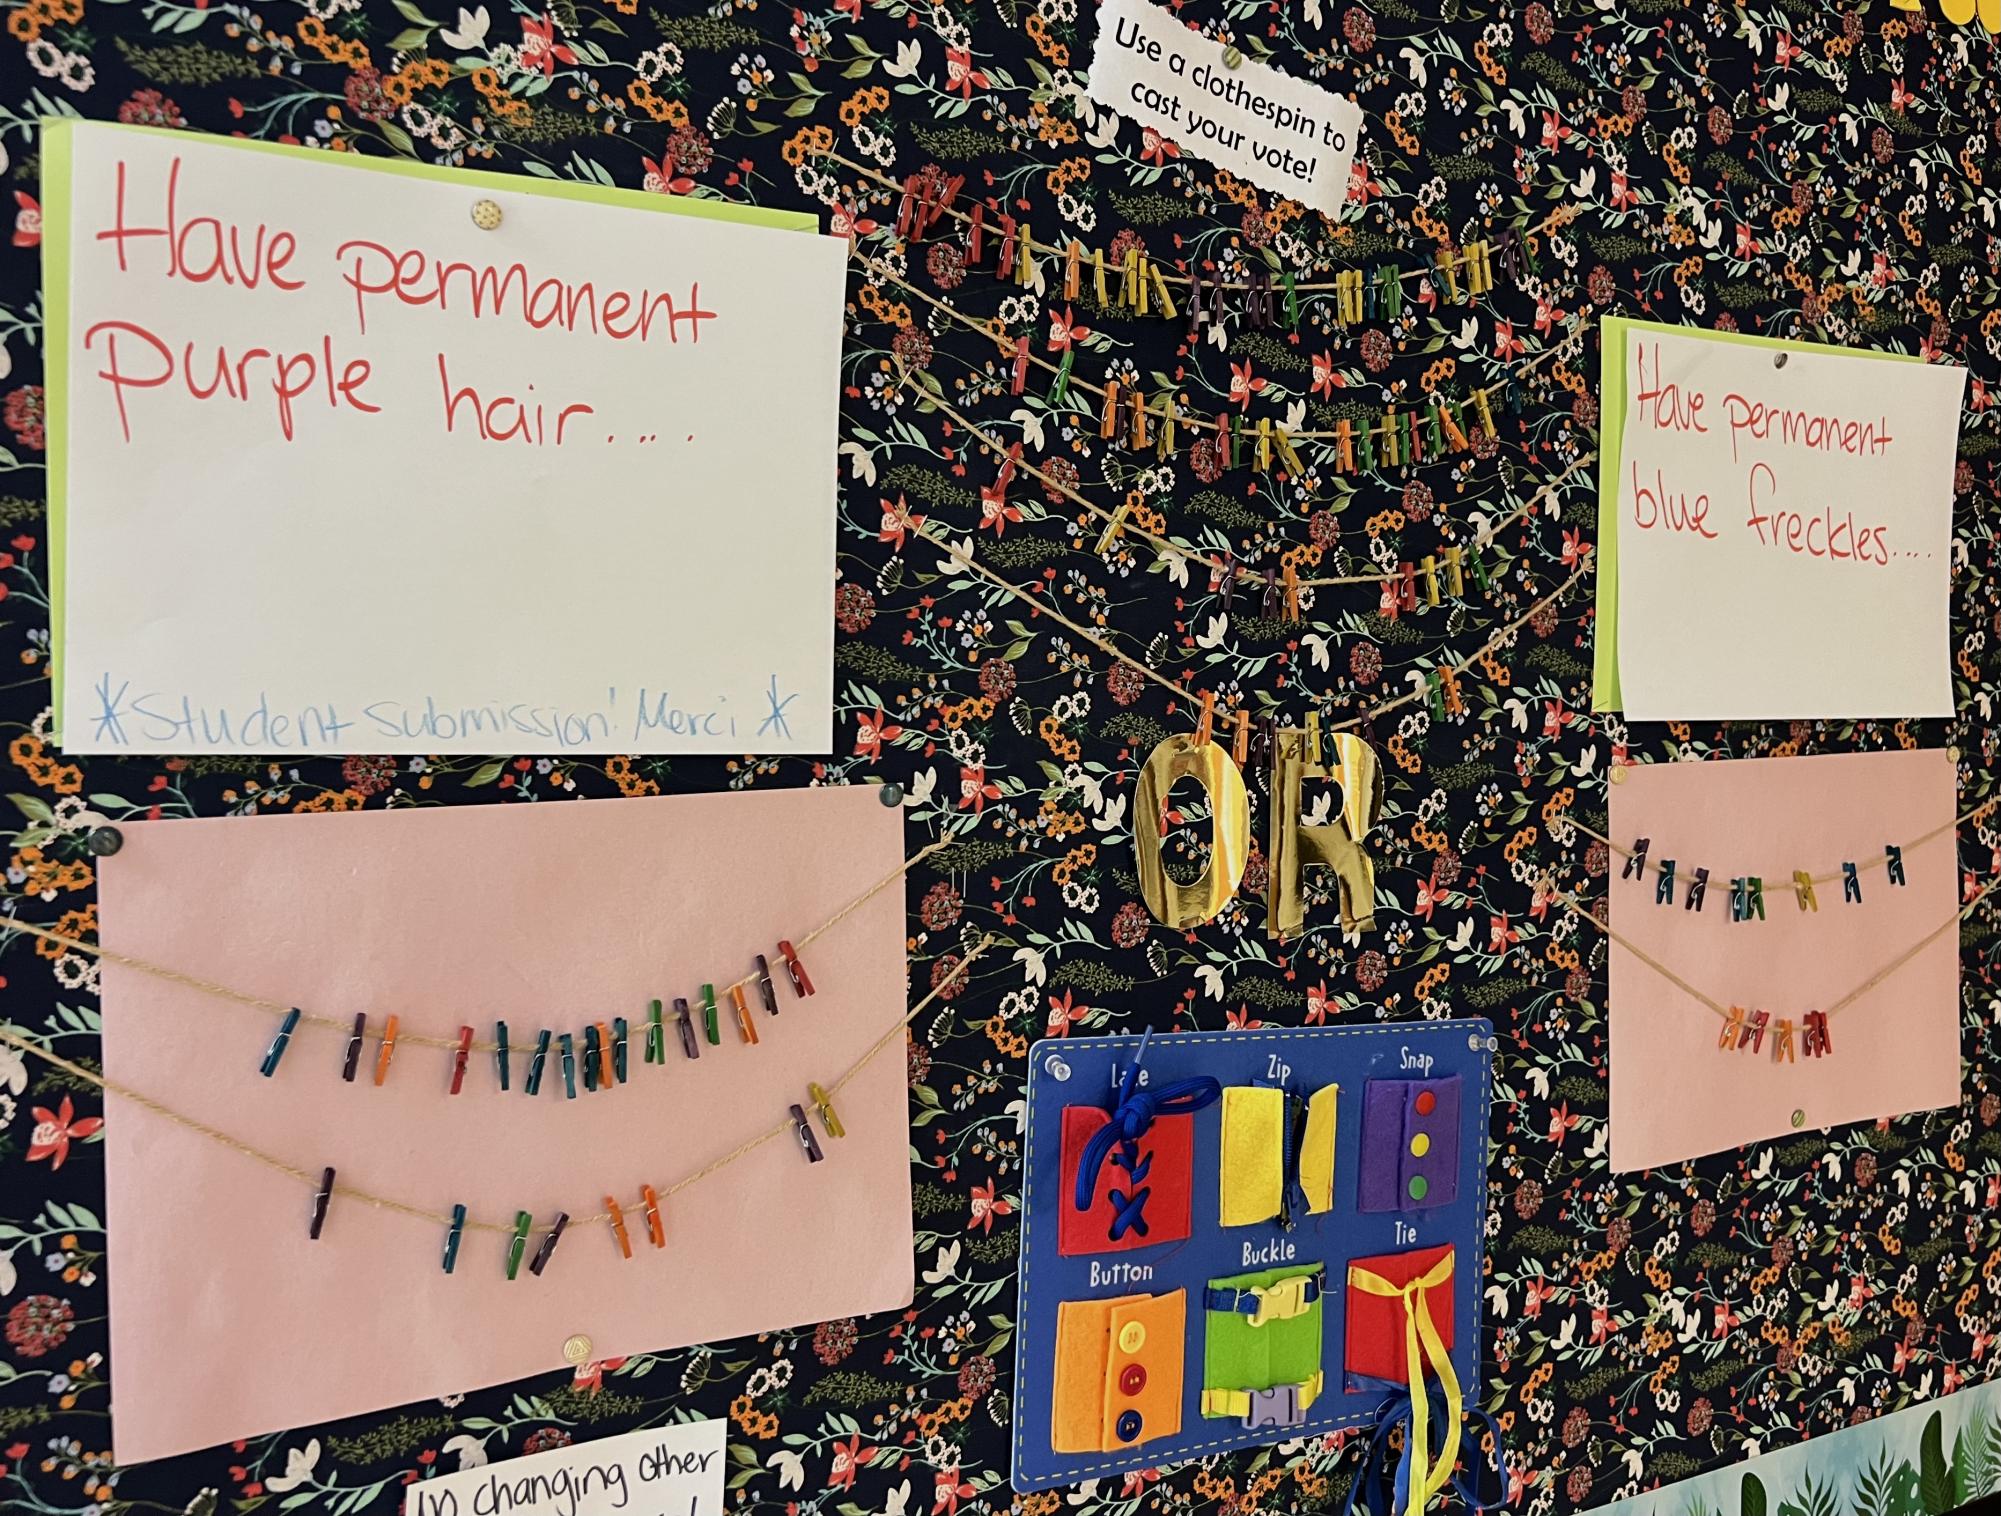 Use a clothespin to
cast your vote!
Have permanent
purple hair....
*Student submission! Merci *
Have permanent
blue freckles....
OR
Lace
Zip
Snap
Button
Buckle
Tie
changing other